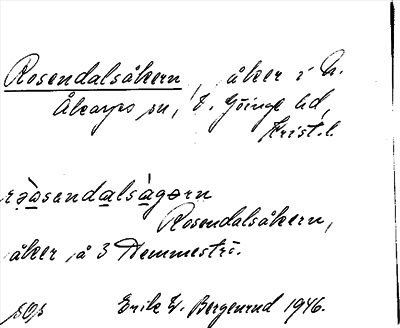 Rosendalsåkern, åker i N.
Åkarps sn, V. Göinge hd,
Krist. l.
rə̀osəndalsàgərn
Rosendalsåkern,
åker å 3 Hemmeströ.
sOs Erik W. Bergenrud 1946.